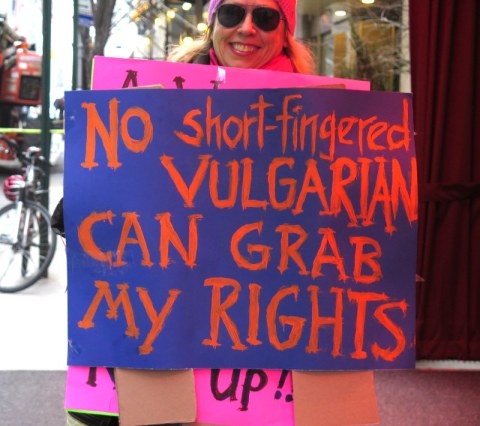 NO short-fingered
VULGARIAN
CAN GRAB
MY RIGHTS
UP!!